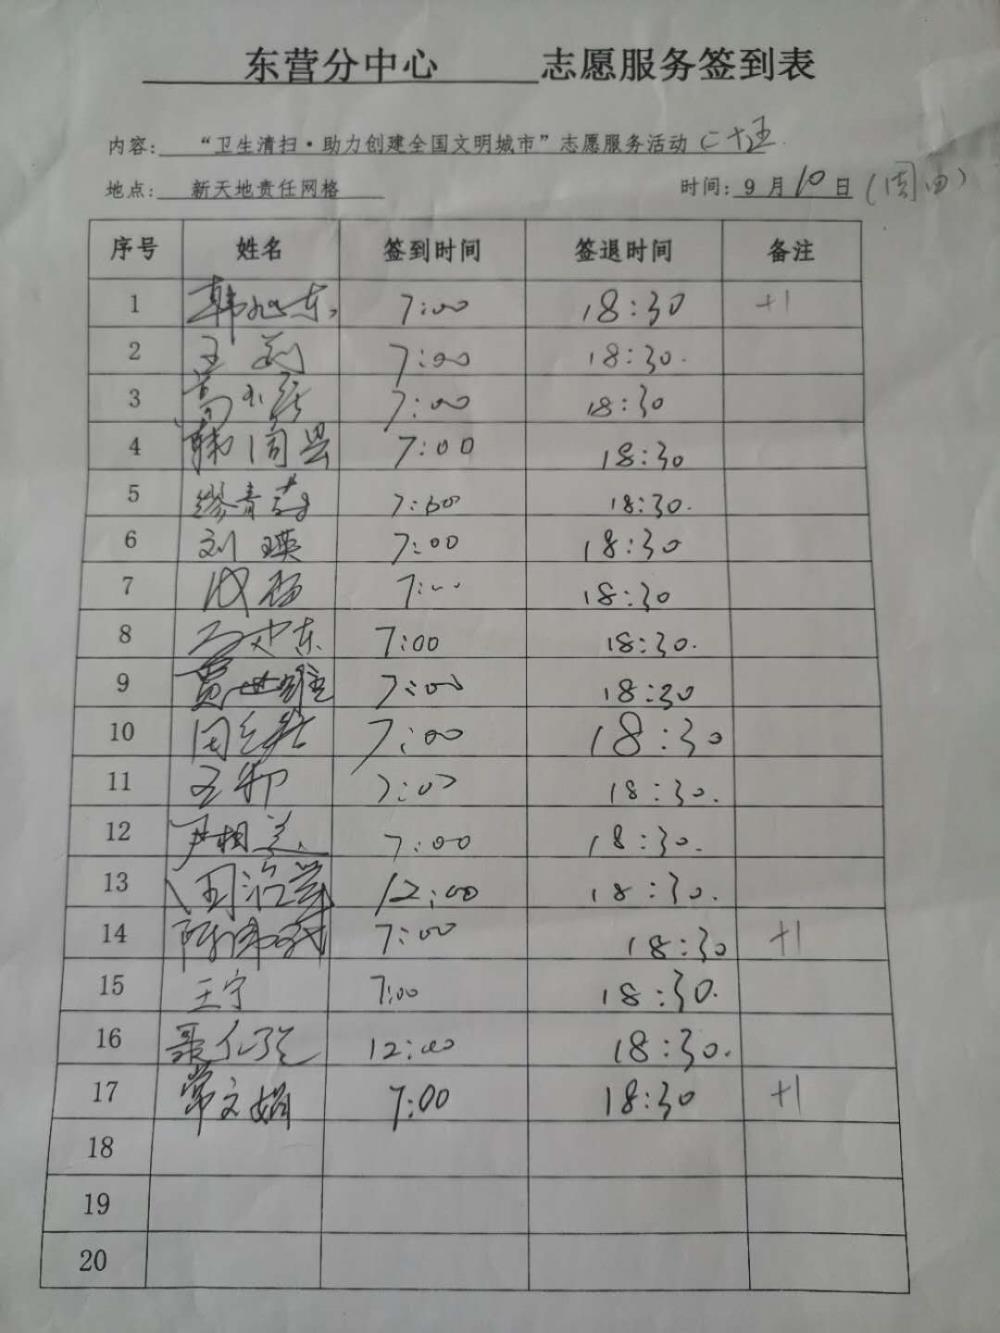 东营分中心 志愿服务签到表
内容: “卫生清扫·助力创建全国文明城市”志愿服务活动
地点: 新天地责任网格 时间: 9月10日(周四)
序号 姓名 签到时间 签退时间 备注
1 韩旭东 7:00 18:30 +1
2 王莉 7:00 18:30.
3 7:00 18:30
4 韩同昙 7:00 18:30
5 缪青 7:00 18:30.
6 刘瑛 7:00 18:30
7 7:00 18:30
8 7:00 18:30.
9 贾世雄 7:00 18:30
10 7:00 18:30
11 7:00 18:30.
12 尹相兰 7:00 18:30.
13 周治学 12:00 18:30.
14 7:00 18:30 +1
15 王宁 7:00 18:30.
16 12:00 18:30.
17 常文娟 7:00 18:30 +1
18
19
20